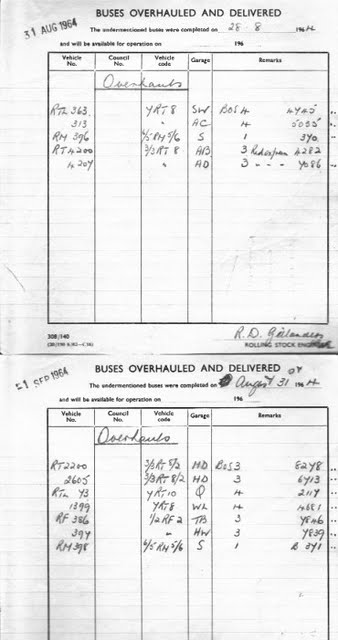 31 AUG 1964
BUSES OVERHAULED AND DELIVERED
The undermentioned buses were completed on 28 - 8 1964
and will be available for operation on 196
Vehicle No. Council No. Vehicle code Garage Remarks
Overhauls
RTL 363 7RT8 SW BOS 4 4745
313 " AC 4 5035
RM 396 6/5 RM 5/6 S 1 370
RT 4200 3/3 RT 8 AB 3 4282
4207 " AD 3 - - - 4086
308/140
R.D. Gillanders
ROLLING STOCK ENGINEER
1 SEP 1964
BUSES OVERHAULED AND DELIVERED
The undermentioned buses were completed on August 31 1964
and will be available for operation on 196
Vehicle No. Council No. Vehicle code Garage Remarks
Overhauls
RT2200 3/3 RT 8/2 MD BOS 3 8278
2605 3/3 RT 8/2 HD 3 6713
RTL 73 7RT10 Q 4 2117
1399 7RT8 WL 4 4681
RF 386 1/2 RF 2 TB 3 7846
397 " HW 3 7839
RM 398 6/5 RM 5/6 S 1 B 371